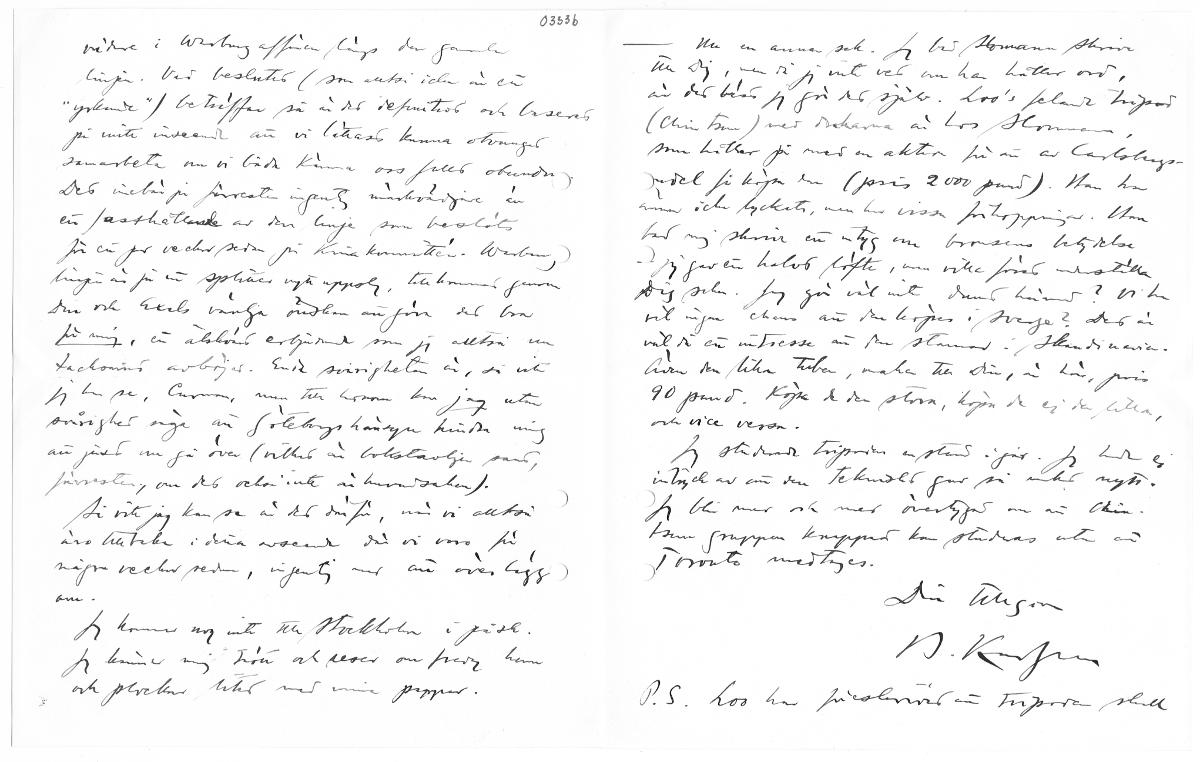 03336
vidare i Warburgaffären längs den gamla
linjen. Vad beslutet (som alltså icke är ett
"yrkande") beträffar så är det definitivt och baserat
på mitt inseende att vi lättast kunna otvunget
samarbeta om vi båda känna oss fullt obundna.
Det innebär ju förresten ingenting märkvärdigare än
ett fasthållande av den linje som beslöts
för ett par veckor sedan på Kinakommittén. Warburg
linjen är ju ett nytt uppslag, tillkommet genom
Din och Axels vänliga önskan att göra det bra
för mig, ett älskvärt erbjudande som jag alltså
tacksamt avböjer. Enda svårigheten är, så vitt
jag kan se, Curman, men till honom kan jag utan
svårighet säga att Göteborgshänsyn hindra mig
att just nu gå över (vilket är bokstavligen sant,
förresten, om det också inte är huvudsaken).
Så vitt jag kan se är det därför, när vi alltså
äro tillbaka i detta avseende där vi voro för
några veckor sedan, ingenting mer att överlägga
om.
Jag kommer nog inte till Stockholm i påsk.
Jag känner mig trött och reser om fredag hem
och plockar litet med mina papper.
Nu en annan sak. Jag bad Hormann skriva
till Dig, men då jag inte vet om han håller ord,
är det bäst jag gör det själv. Loo's felande tripod
(Chin tsun) med drakarna är hos Hormann,
som håller på med en aktion för att av Carlsbergs-
medel få köpa den (pris 2000 pund). Han har
ännu icke lyckats, men har vissa förhoppningar. Han
bad mig skriva ett intyg om bronsens betydelse
jag gav ett halvt löfte, men ville först underställa
Dig saken. Jag gör väl inte dumt härmed? Vi ha
väl ingen chans att den köpes i Sverige? Det är
väl då ett intresse att den stannar i Skandinavien.
Även den lilla tuben, maken till Din, är här, pris
90 pund. Köpa de den stora, köpa de ej den lilla,
och vice versa.
Jag studerade tripoden en stund igår. Jag hade ej
intryck av att den tekniskt gav så mycket nytt.
Jag blir mer och mer övertygad om att Chin-
tsun gruppen knappast kan studeras utan att
Toronto medtages.
Din tillgivne
P.S. Loo har föreskrivit att tripoden skall